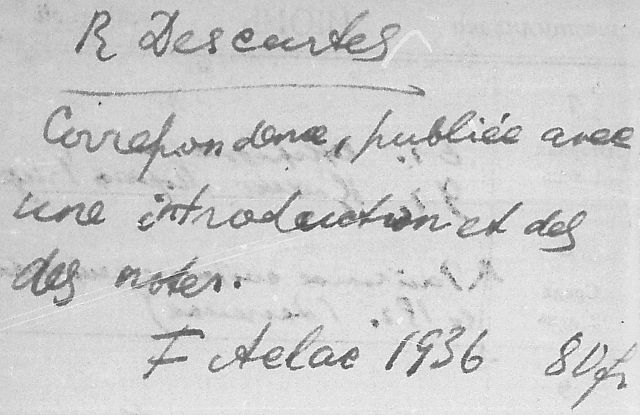 R Descartes
Correpondence, publiée avec
une introduction et des
des notes.
F Aelac 1936 80 fr